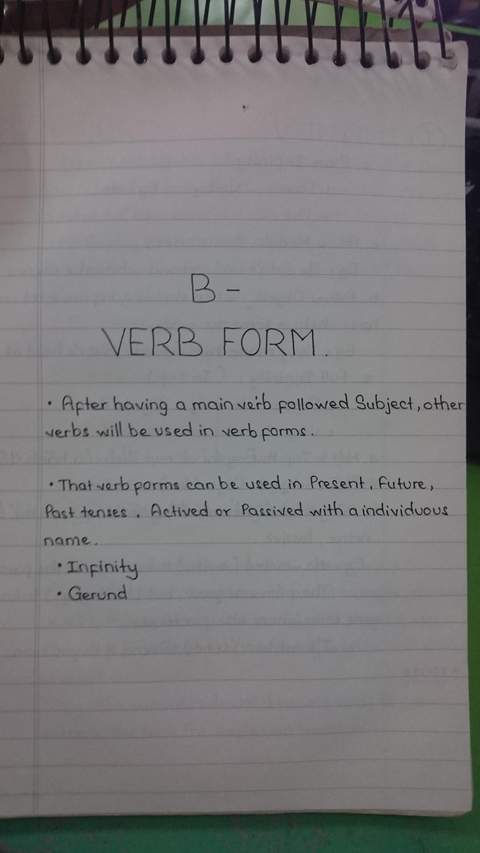 B -
VERB FORM.
• After having a main verb followed Subject, other
verbs will be used in verb forms.
• That verb forms can be used in Present, Future,
Past tenses. Actived or Passived with a individuous
name.
• Infinity
• Gerund